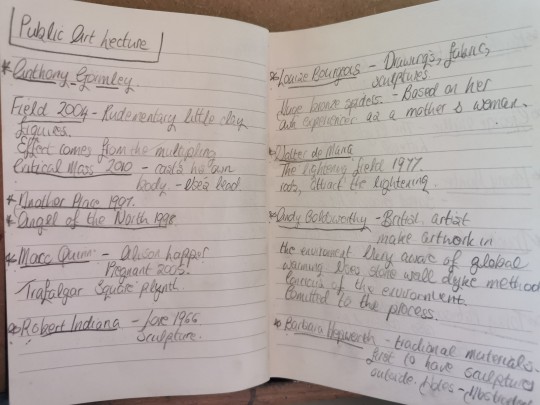 Public Art Lecture
* Anthony Gormley
Field 2004 - Rudementary little clay
figures.
Effect comes from the multiples
Critical Mass 2010 - casts his own
body. - Uses lead.
* Another Place 1997.
* Angel of the North 1998.
* Marc Quinn - Alison Lapper
Pregnant 2005.
Trafalgar Square plynt.
* Robert Indiana - Love 1966
Sculpture.
* Louise Bourgeois - Drawings, fabric,
sculptures
Huge bronze spiders. - Based on her
own experiences as a mother & woman.
* Walter de Maria
The lightening field 1977.
rods, attract the lightening.
* Andy Goldsworthy - British, artist
make artwork in
the environment. Very aware of global
warming. Uses stone wall dyke method
of the environment.
Comitted to the process.
* Barbara Hepworth - tradional materials.
first to have sculptures
outside. Holes - Abstracted